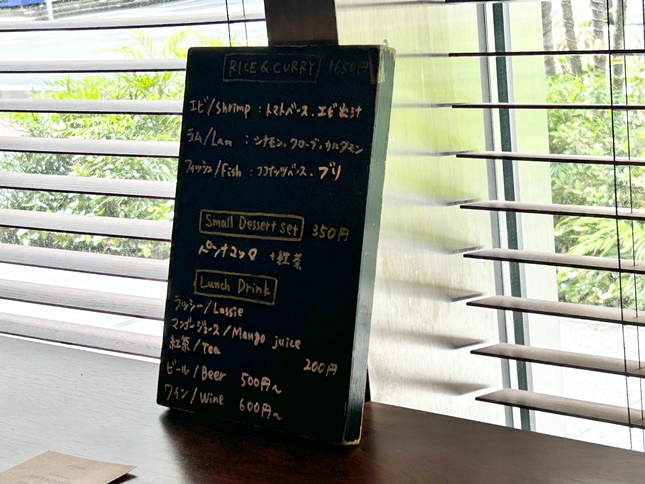 RICE & CURRY 1650円
エビ/Shrimp : トマトベース、エビ出汁
ラム/Lam : シナモン、クローブ、カルダモン
フィッシュ/Fish : ココナッツベース、ブリ
Small Dessert set 350円
+紅茶
Lunch Drink
ラッシー/Lassie
マンゴージュース/Mango juice
紅茶/Tea
200円
ビール/Beer 500円~
ワイン/Wine 600円~